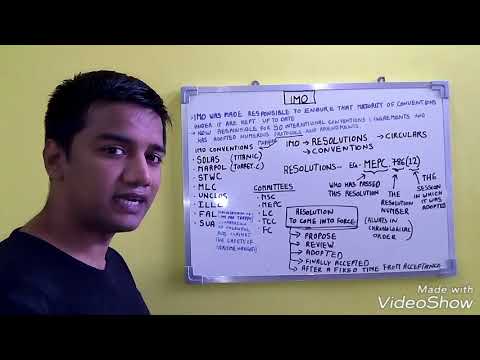 IMO
• IMO WAS MADE RESPONSIBLE TO ENSURE THAT MAJORITY OF CONVENTIONS
UNDER IT ARE KEPT UP TO DATE
• NOW RESPONSIBLE FOR 50 INTERNATIONAL CONVENTIONS & AGREEMENTS AND
HAS ADOPTED NUMEROUS PROTOCOLS AND AMENDMENTS.
IMO CONVENTIONS
• SOLAS (TITANIC)
• MARPOL (TORREY.C)
• STWC
• MLC
• UNCLOS
• ILLC
• FAL
• SUA
IMO → RESOLUTIONS → CIRCULARS
→ CONVENTIONS
RESOLUTIONS - Eg - MEPC. 786(12)
WHO HAS PASSED
THIS RESOLUTION
THE
RESOLUTION
NUMBER
(ALWAYS IN
CHRONOLOGICAL
ORDER)
THE
SESSION
IN WHICH
IT WAS
ADOPTED
COMMITTEES
• MSC
• MEPC
• LC
• TCC
• FC
RESOLUTION
TO COME INTO FORCE
→ PROPOSE
→ REVIEW
→ ADOPTED
→ FINALLY ACCEPTED
→ AFTER A FIXED TIME FROM ACCEPTANCE
Made with
VideoShow